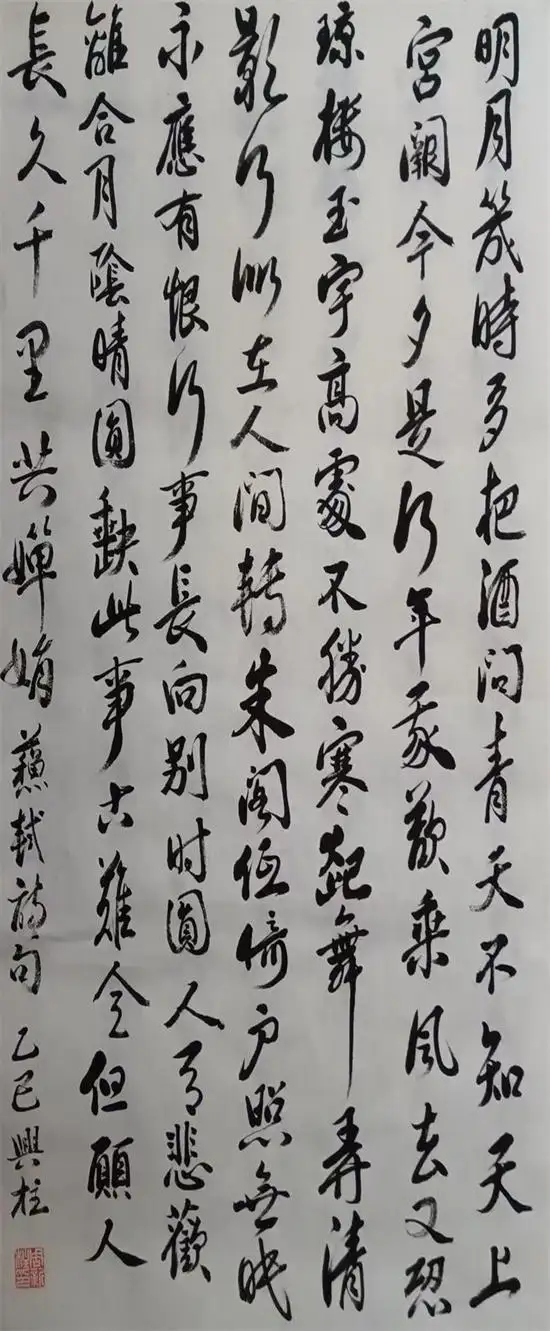 明月幾時有把酒問青天不知天上
宮闕今夕是何年我欲乘風去又恐
瓊樓玉宇高處不勝寒起舞弄清
影何似在人間轉朱閣低倚戶照無眠
不應有恨何事長向別时圓人有悲歡
離合月陰晴圓缺此事古難全但願人
長久千里共嬋娟 蘇軾詩句 乙巳興柱